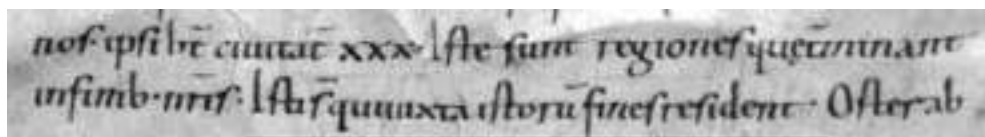 nos. ipsi hn̄t ciuitat̄ xxx. Iste sunt regiones que t̄minant
in finib. nr̄is. Isti s̄ qui iuxta istorū fines resident. Osterab